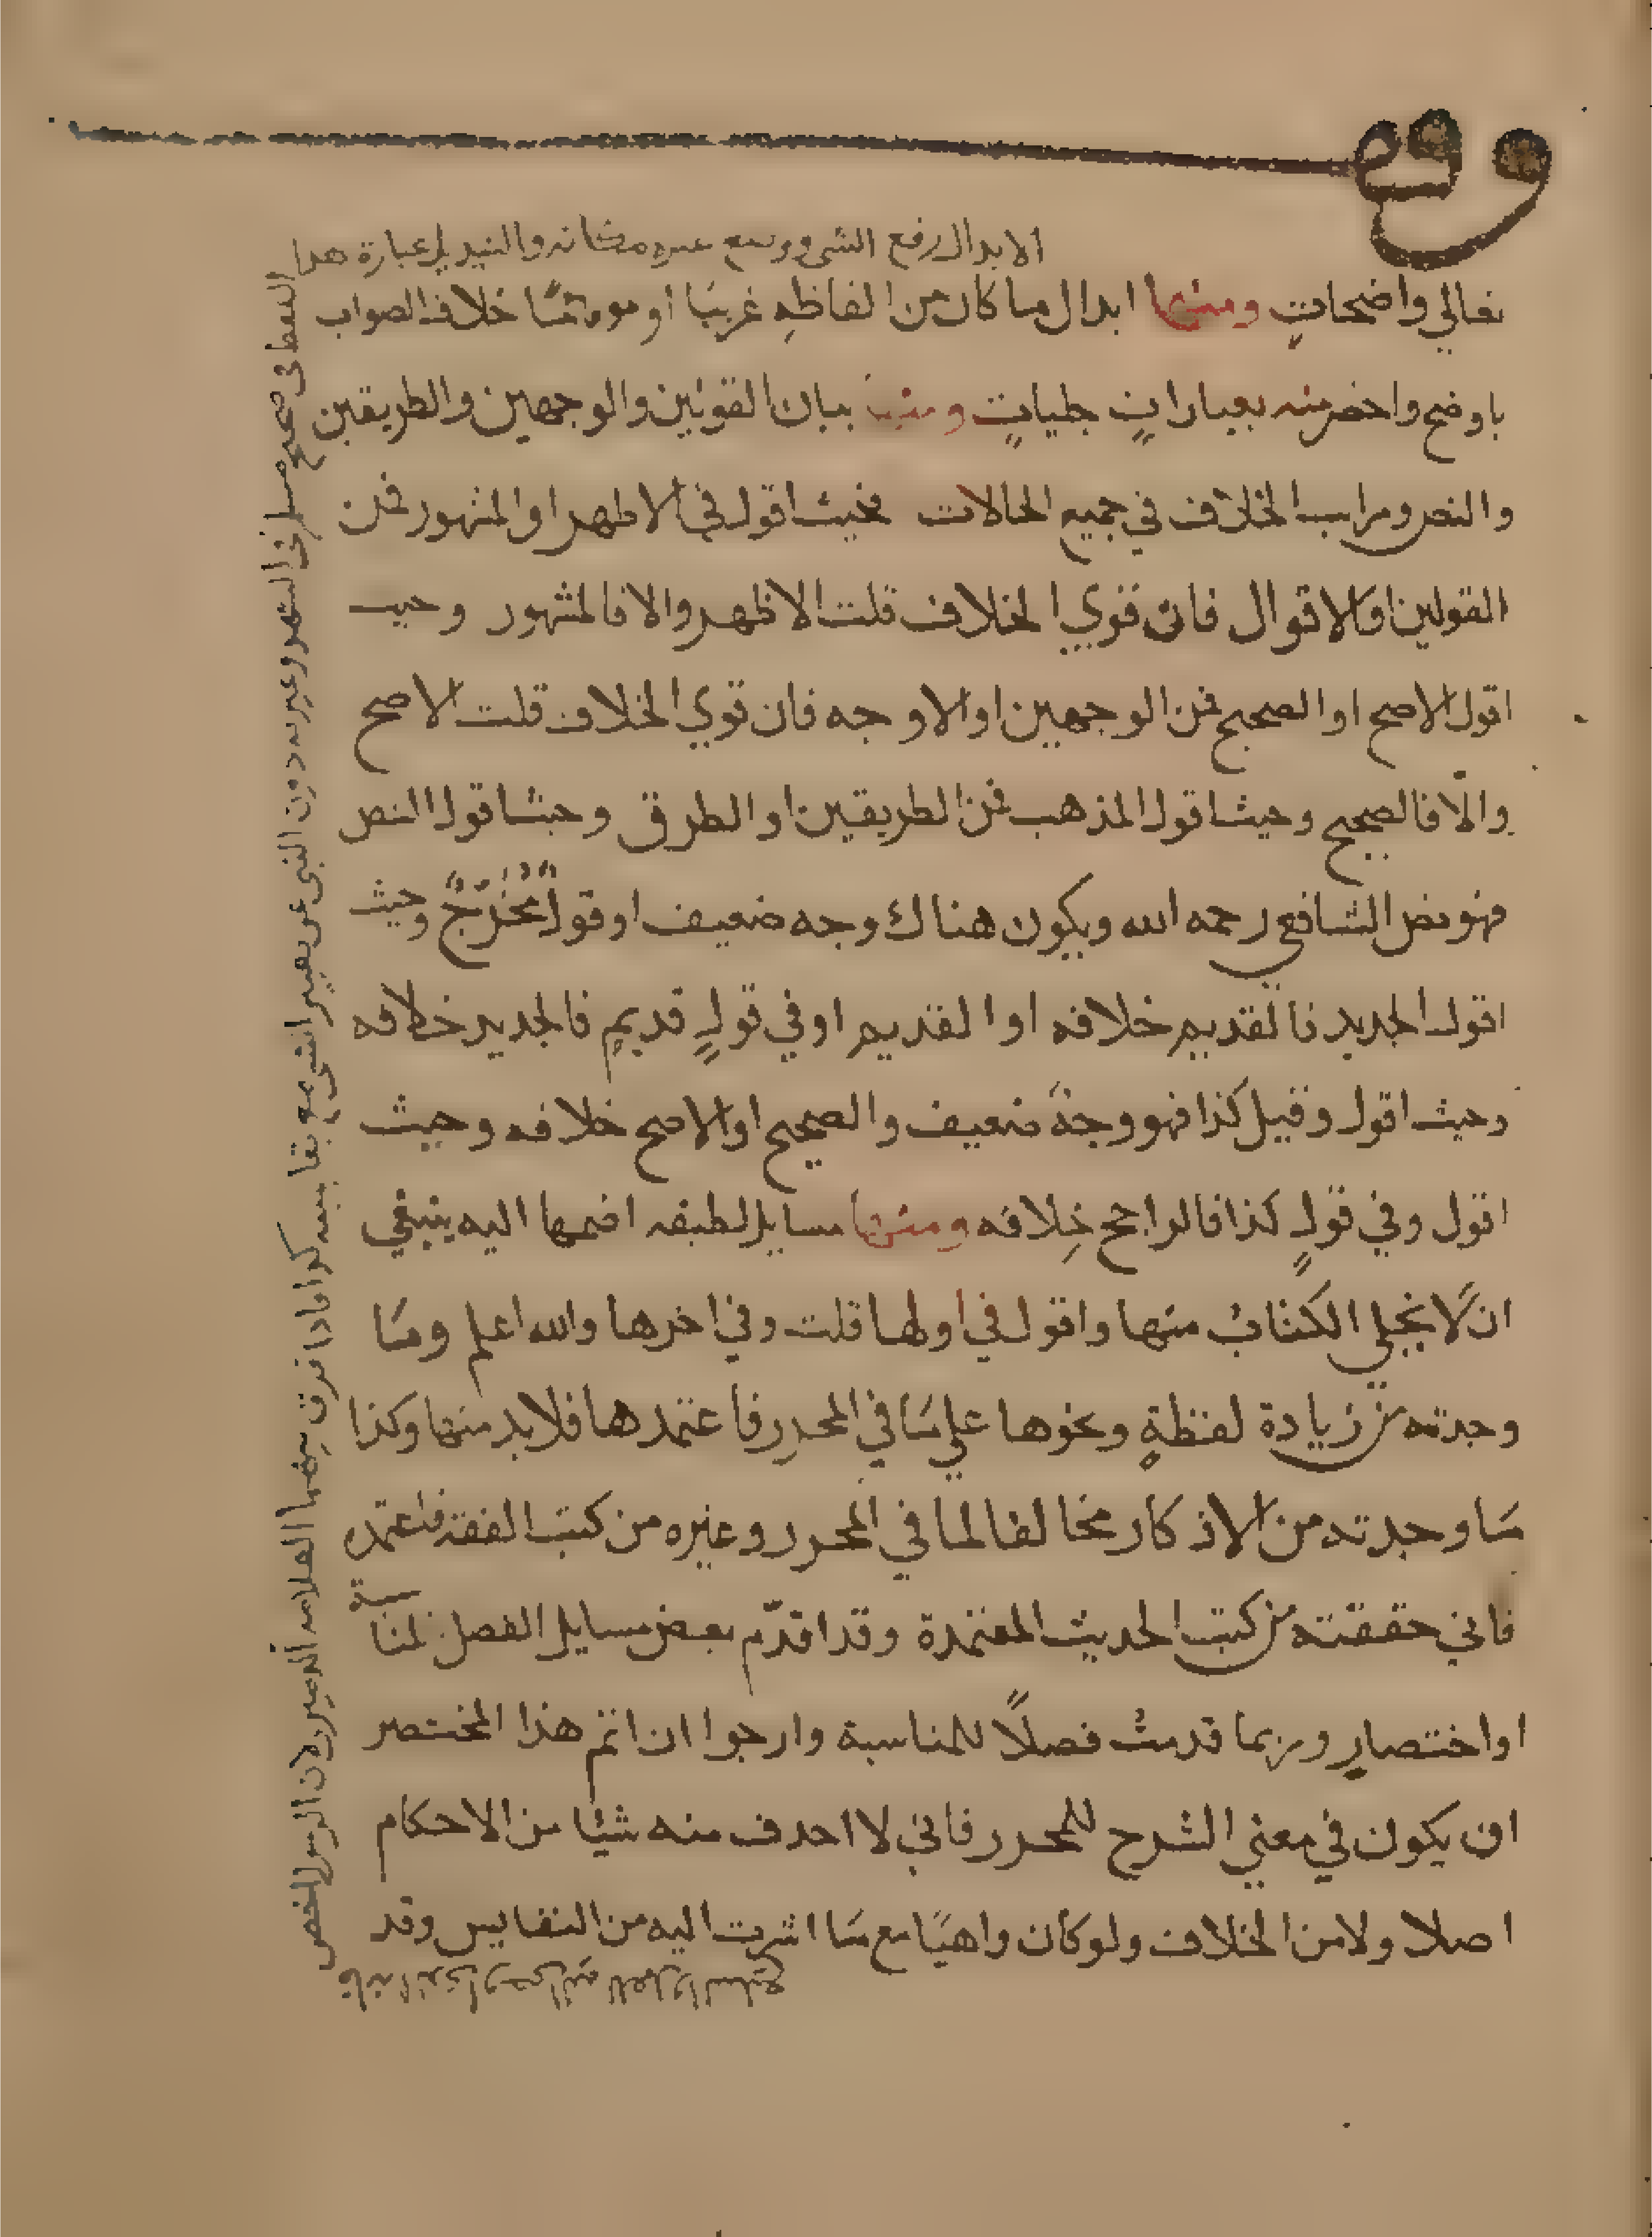 وقف
الابدال رفع الشى ووضع غيره مكانه والتبديل عبارة هذا
تعالي واضحاتٍ ومنها ابدال ما كان من الفاظهِ غريبًا او موهمًا خلاف الصواب
باوضح واخصر منه بعباراتٍ جلياتٍ ومنها بيان القولين والوجهين والطريقين
والنص ومراتب الخلاف في جميع الحالات فحيث اقول في الاظهر او المشهور فمن
القولين او الاقوال فان قوي الخلاف قلت الاظهر والا فالمشهور وحيث
اقول الاصح او الصحيح فمن الوجهين او الاوجه فان قوي الخلاف قلت الاصح
والا فالصحيح وحيث اقول المذهب فمن الطريقين او الطرق وحيث اقول النص
فهو نص الشافعي رحمه الله ويكون هناك وجه ضعيف او قول مُخَرَّجٌ وحيث
اقول الجديد فالقديم خلافه او القديم او في قولٍ قديمٍ فالجديد خلافه
وحيث اقول وقيل كذا فهو وجهٌ ضعيف والصحيح او الاصح خلافه وحيث
اقول وفي قولٍ كذا فالراجح خِلافه ومنها مسايل لطيفه اضمها اليه ينبغي
ان لا يخلي الكتابُ منها واقول في اولها قلت وفي اخرها والله اعلم ومَا
وجدته من زيادة لفظةٍ ونحوها علي مَا في المحررِ فاعتمدها فلا بد منها وكذا
مَا وجدته من الاذكار مخالفا لما في المحرر وغيره من كتب الفقه فاعتمده
فاني حققته من كتب الحديث المعتمدة وقد اقدّم بعض مسايل الفصل لمناسبة
او اختصارٍ وربما قدمتُ فصلاً للمناسبة وارجوا ان اتم هذا المختصر
ان يكون في معني الشرح للمحرر فاني لا احدف منه شيًا من الاحكام
اصلا ولا من الخلاف ولو كان واهيًا مع مَا اشرت اليه من النفايس وقد
صحيح مسلم فى الشهر وغيره دون النبى
بينهما العلامه